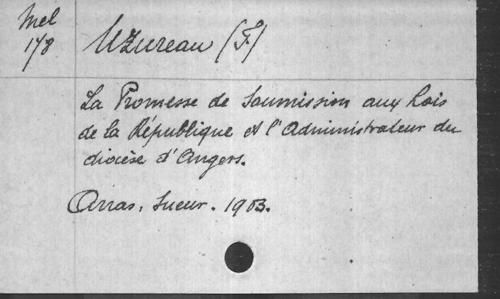 Mel
178
Uzureau (F)
La Promesse de Soumission aux Lois
de la République et l'Administrateur du
diocèse d'Angers.
Arras, Sueur. 1903.